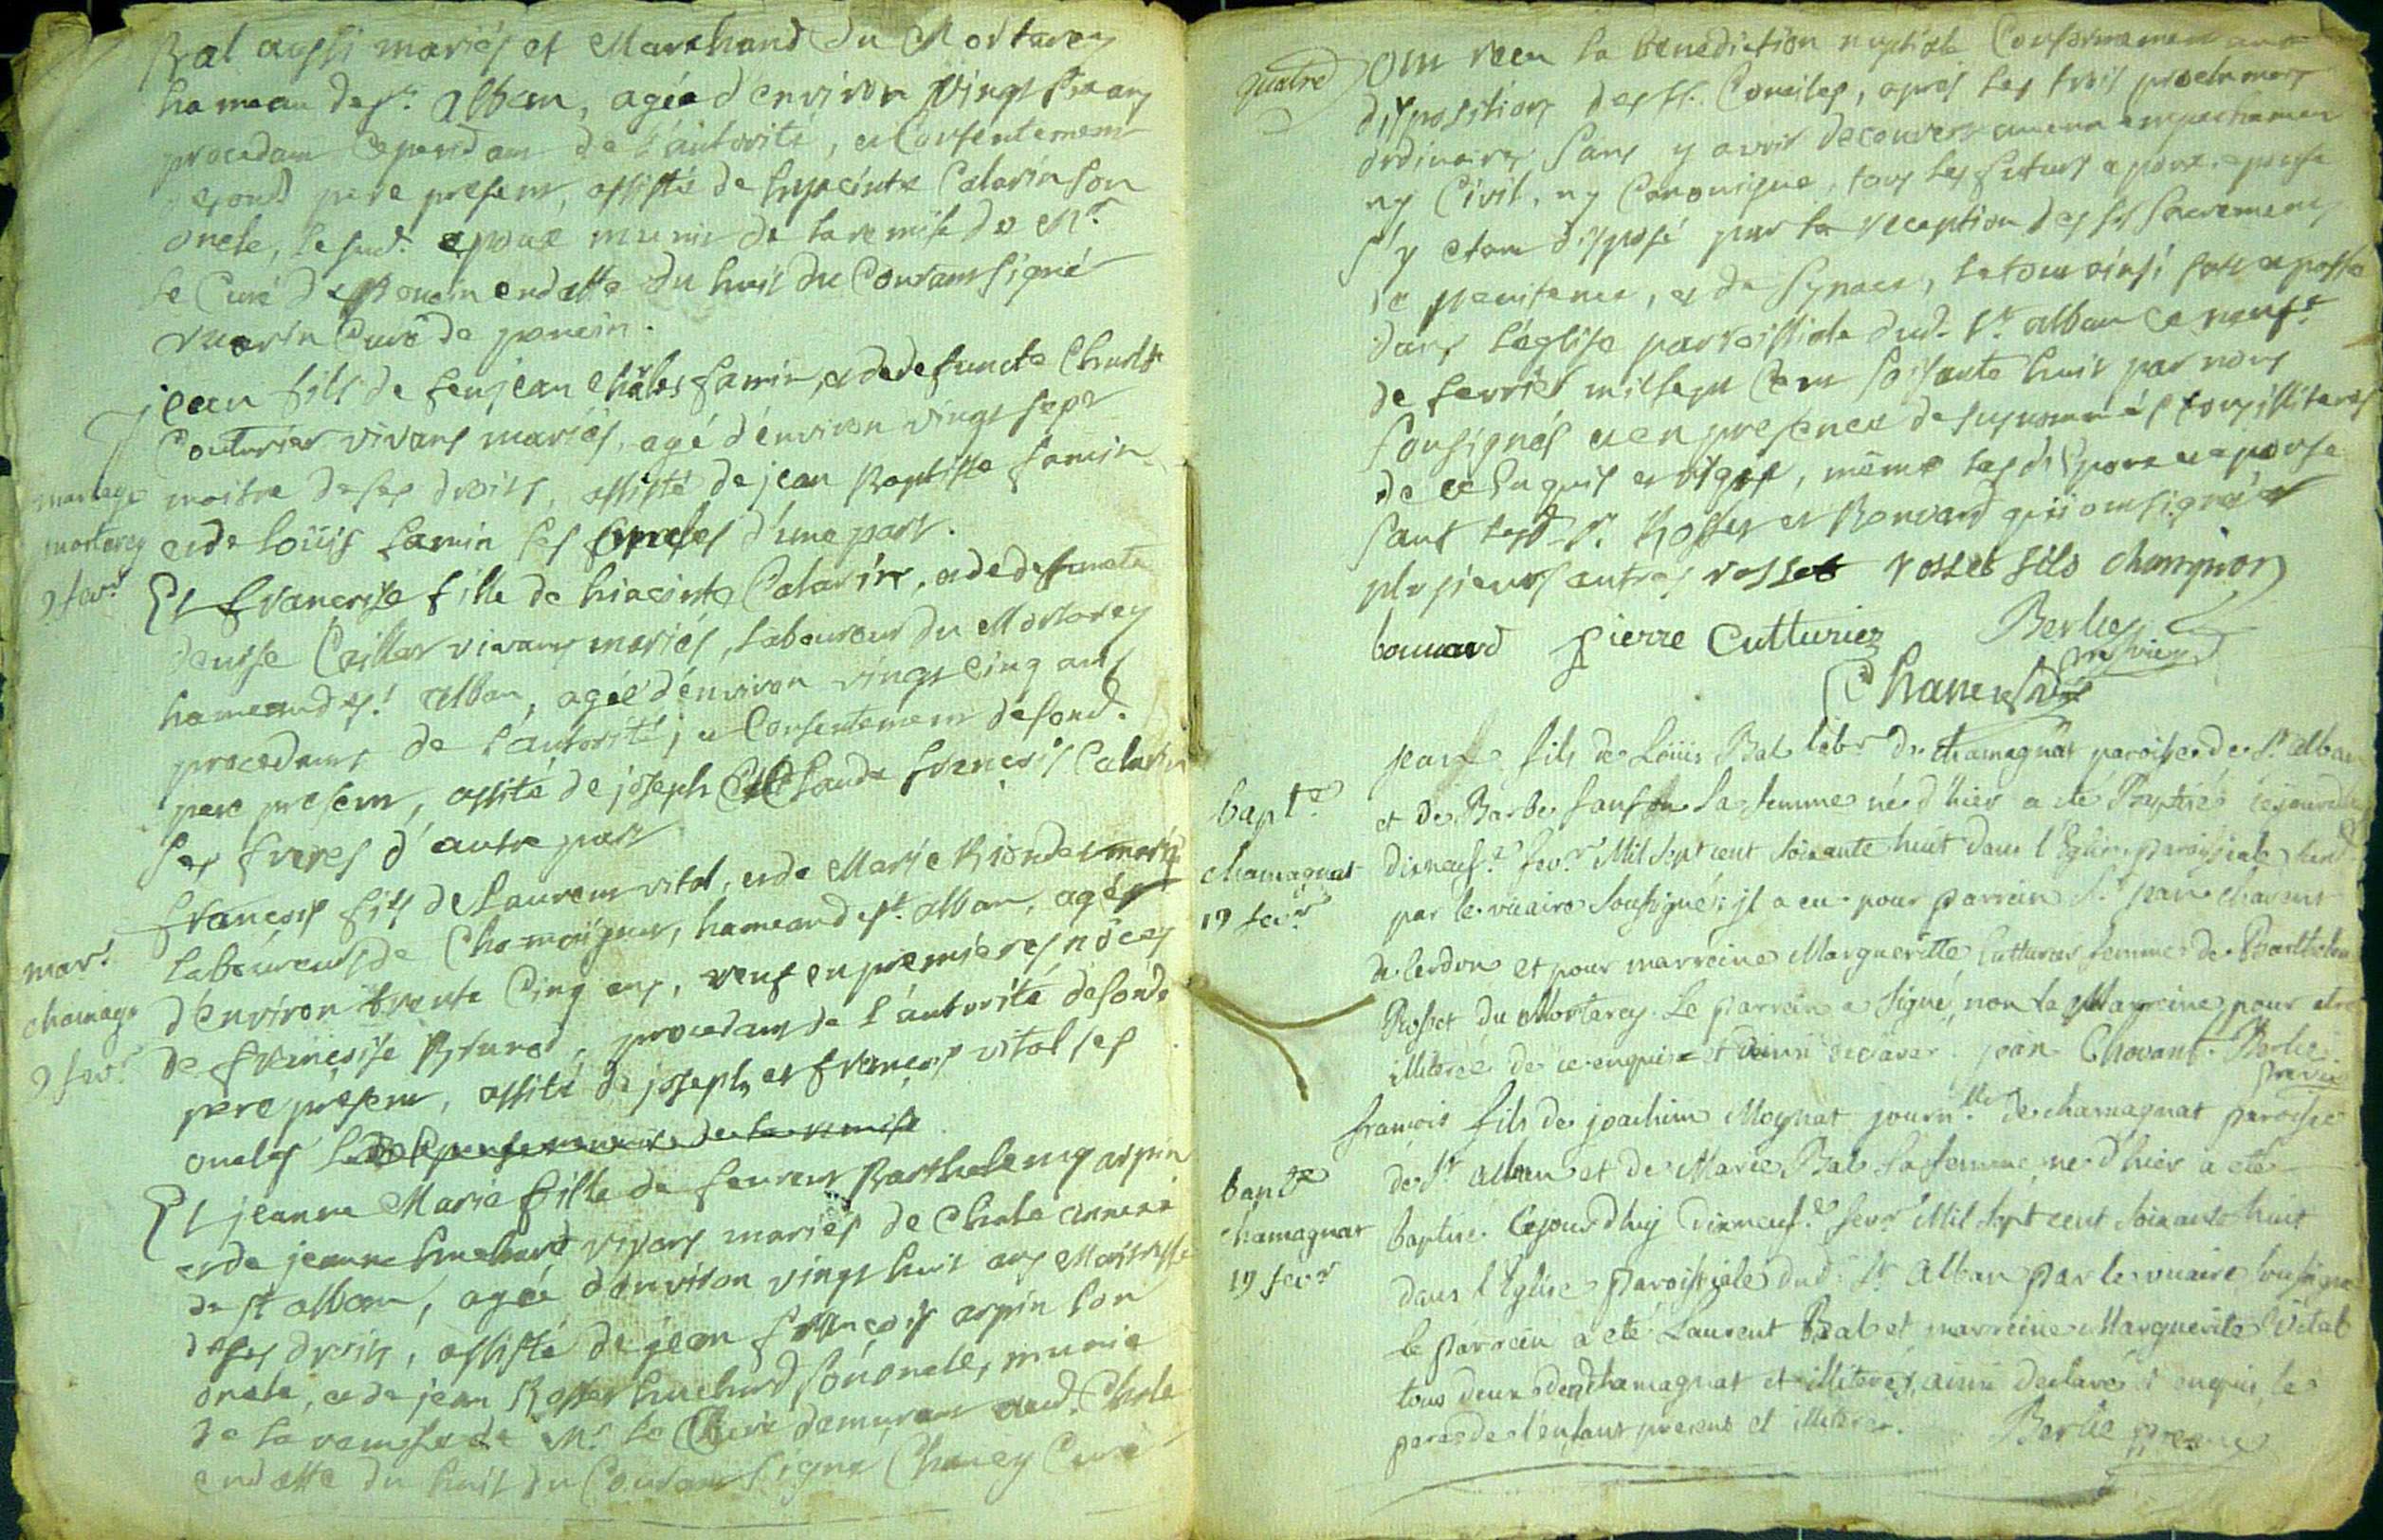 Bal aussi mariés et Marchand du Mortarey
hameau de st. alban, agée d'environ vingt six ans
procedant cependant de l'autorité, et Consentement
de sond pere present, assisté de hyacinte Calarin son
oncle, le sud. epoux munis de la remise de Mr.
le Curé de poncin en datte du huit du Courant signé
Curé de poncin.
jean fils de feu jean Charles Samin, et de defuncte Charlotte
Couturier vivans mariés, agé d'environ vingt sept
mariage
maitre de ses droits, assisté de jean Baptiste Samin
mortarey
et de loüis Samin ses oncles d'une part.
9 fevr.
Et françoise fille de hiacinte Calarin, et de defuncte
denise Caillat vivans mariés, laboureur du Mortarey
hameau de st. alban, agée d'environ vingt cinq ans
procedant de l'autorité, et Consentement de sond.
pere present, assisté de joseph Claude françois Calarin
ses freres d'autre part
françois fils de Laurent vital, et de Marie Riondet mariés
mart.
laboureurs de Chamagnat, hameau de st. alban, agé
d'environ trente cinq ans, veuf en premieres nôces
chamagn
9 fevr.
de françoise Brunod, procedant de l'autorité de sond
pere present, assisté de joseph et françois vital ses
oncles
Et jeanne Marie fille de Laurent Barthelemy arpin
et de jeanne huchard vivans mariés de Chale annexe
de st alban, agée d'environ vingt huit ans Maitresse
de ses droits, assisté de jean françois arpin son
oncle, et de jean Rosset huchard son oncle, munie
de la remise de Mr. le Curé de aud. Chale
en datte du huit du Courant signé Chaney Curé
quatre
Ont reçu la benediction nuptiale Conformement aux
dispositions des sts. Conciles, apres les trois proclamats
ordinaires sans y avoir decouvert aucun empechement
ny Civil, ny Canonique, tous les futurs epoux, epouse
s'y etant disposé par la reception des sts sacrements
de penitence, et de synaxe, le tout ainsi fait et passé
dans l'église parroissiale dud. st. alban ce neufe.
de fevrier mil sept Cent soisante huit par nous
soussignés et en presence de susnomés tous illiteres
de ce enquis et requis, même lesds. epoux et epouse
sauf lesd. Srs. Rosset et Bonvard qui ont signé et
plusieurs autres rosset rosset fils champion
bonvard pierre Cutturier Berlie
vic
Chanel
jean fils de Loüis Bal labr de chamagnat paroisse de St. alban
bapte
et de Barbe sanson sa femme né d'hier a eté Baptisé cejourdhuy
dixneufe. fevr. Mil Sept cent soixante huit dans l'Eglise paroissiale dud.
chamagnat
19 fevr
par le vicaire soussigné; jl a eu pour parrein Sr. jean chavent
de Cerdon et pour marreine Margueritte Cutturier femme de Barthelemy
Rosset du Mortarey. Le parrein a signé, non la Marreine pour etre
illiterée de ce enquise et ainsi declaré. jean Chavant. Berlie
pre vic
françois fils de joachim Moynat journlr de chamagnat paroisse
bapte
de St alban et de Marie Bal sa femme, né d'hier a eté
chamagnat
baptisé cejourd'huy dixneufe. fevr. Mil Sept cent soixante huit
19 fevr
dans l'Eglise Paroissiale dud. St Alban par le vicaire soussigné
le parrein a eté Laurent Bal et marreine Marguerite Vital
tous deux de Chamagnat et illiterés, ainsi declaré et enquis, le
pere de l'enfant present et illiteré. Berlie pre vic